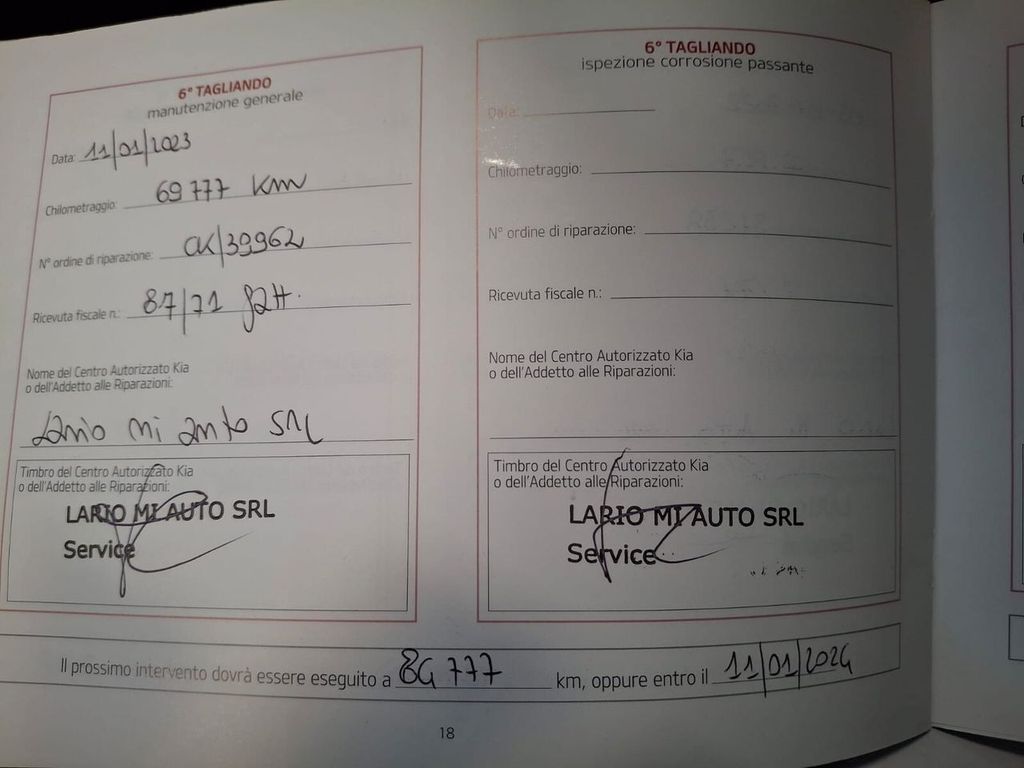 6° TAGLIANDO
manutenzione generale
Data: 11/01/2023
Chilometraggio: 69 777 KM
N° ordine di riparazione: CK/39962
Ricevuta fiscale n.: 87/71
Nome del Centro Autorizzato Kia
o dell'Addetto alle Riparazioni:
Lario mi auto SRL
Timbro del Centro Autorizzato Kia
o dell'Addetto alle Riparazioni:
LARIO MI AUTO SRL
Service
6° TAGLIANDO
ispezione corrosione passante
Data:
Chilometraggio:
N° ordine di riparazione:
Ricevuta fiscale n.:
Nome del Centro Autorizzato Kia
o dell'Addetto alle Riparazioni:
Timbro del Centro Autorizzato Kia
o dell'Addetto alle Riparazioni:
LARIO MI AUTO SRL
Service
Il prossimo intervento dovrà essere eseguito a 84 777 km, oppure entro il 11/01/2024
18